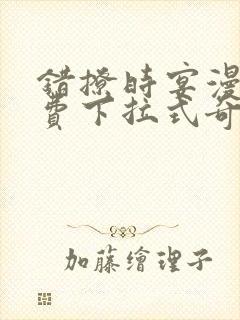 错撩時宴漫
費下拉式奇
加藤繪理子